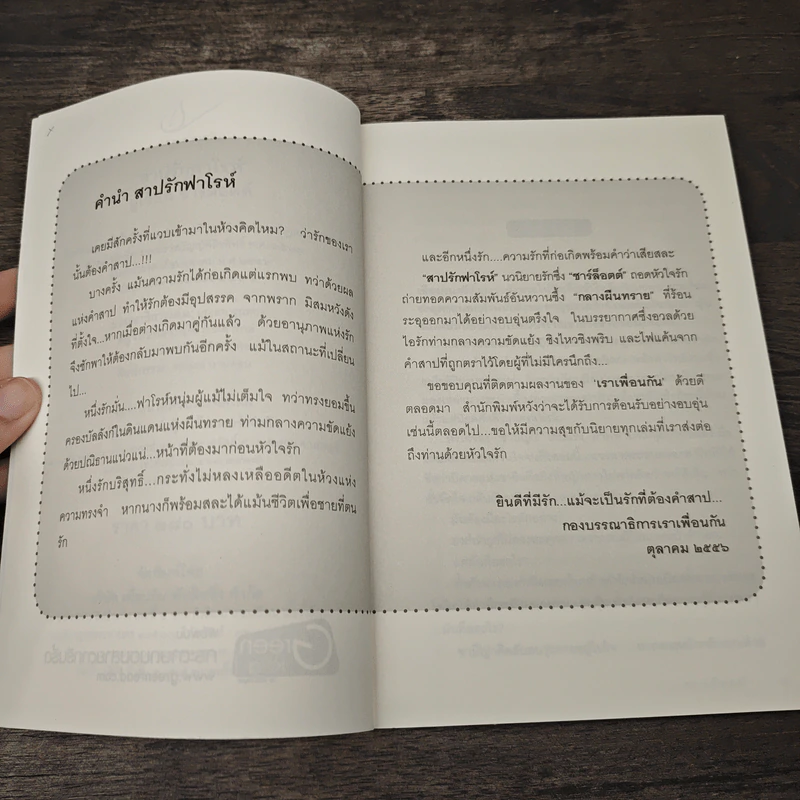 คำนำ สาปรักฟาโรห์
เคยมีสักครั้งที่แวบเข้ามาในห้วงคิดไหม? ว่ารักของเรา
นั้นต้องคำสาป...!!!
บางครั้ง แม้นความรักได้ก่อเกิดแต่แรกพบ ทว่าด้วยผล
แห่งคำสาป ทำให้รักต้องมีอุปสรรค จากพราก มิสมหวังดัง
ที่ตั้งใจ...หากเมื่อต่างเกิดมาคู่กันแล้ว ด้วยอานุภาพแห่งรัก
จึงชักพาให้ต้องกลับมาพบกันอีกครั้ง แม้ในสถานะที่เปลี่ยน
ไป...
หนึ่งรักมั่น....ฟาโรห์หนุ่มผู้แม้ไม่เต็มใจ ทว่าทรงยอมขึ้น
ครองบัลลังก์ในดินแดนแห่งผืนทราย ท่ามกลางความขัดแย้ง
ด้วยปณิธานแน่วแน่...หน้าที่ต้องมาก่อนหัวใจรัก
หนึ่งรักบริสุทธิ์...กระทั่งไม่หลงเหลืออดีตในห้วงแห่ง
ความทรงจำ หากนางก็พร้อมสละได้แม้นชีวิตเพื่อชายที่ตน
รัก
และอีกหนึ่งรัก....ความรักที่ก่อเกิดพร้อมคำว่าเสียสละ
"สาปรักฟาโรห์" นวนิยายรักซึ่ง "ชาร์ล็อตต์" ถอดหัวใจรัก
ถ่ายทอดความสัมพันธ์อันหวานซึ้ง "กลางผืนทราย" ที่ร้อน
ระอุออกมาได้อย่างอบอุ่นตรึงใจ ในบรรยากาศซึ่งอวลด้วย
ไอรักท่ามกลางความขัดแย้ง ชิงไหวชิงพริบ และไฟแค้นจาก
คำสาปที่ถูกตราไว้โดยผู้ที่ไม่มีใครนึกถึง...
ขอขอบคุณที่ติดตามผลงานของ 'เราเพื่อนกัน' ด้วยดี
ตลอดมา สำนักพิมพ์หวังว่าจะได้รับการต้อนรับอย่างอบอุ่น
เช่นนี้ตลอดไป...ขอให้มีความสุขกับนิยายทุกเล่มที่เราส่งต่อ
ถึงท่านด้วยหัวใจรัก
ยินดีที่มีรัก...แม้จะเป็นรักที่ต้องคำสาป...
กองบรรณาธิการเราเพื่อนกัน
ตุลาคม ๒๕๕๖